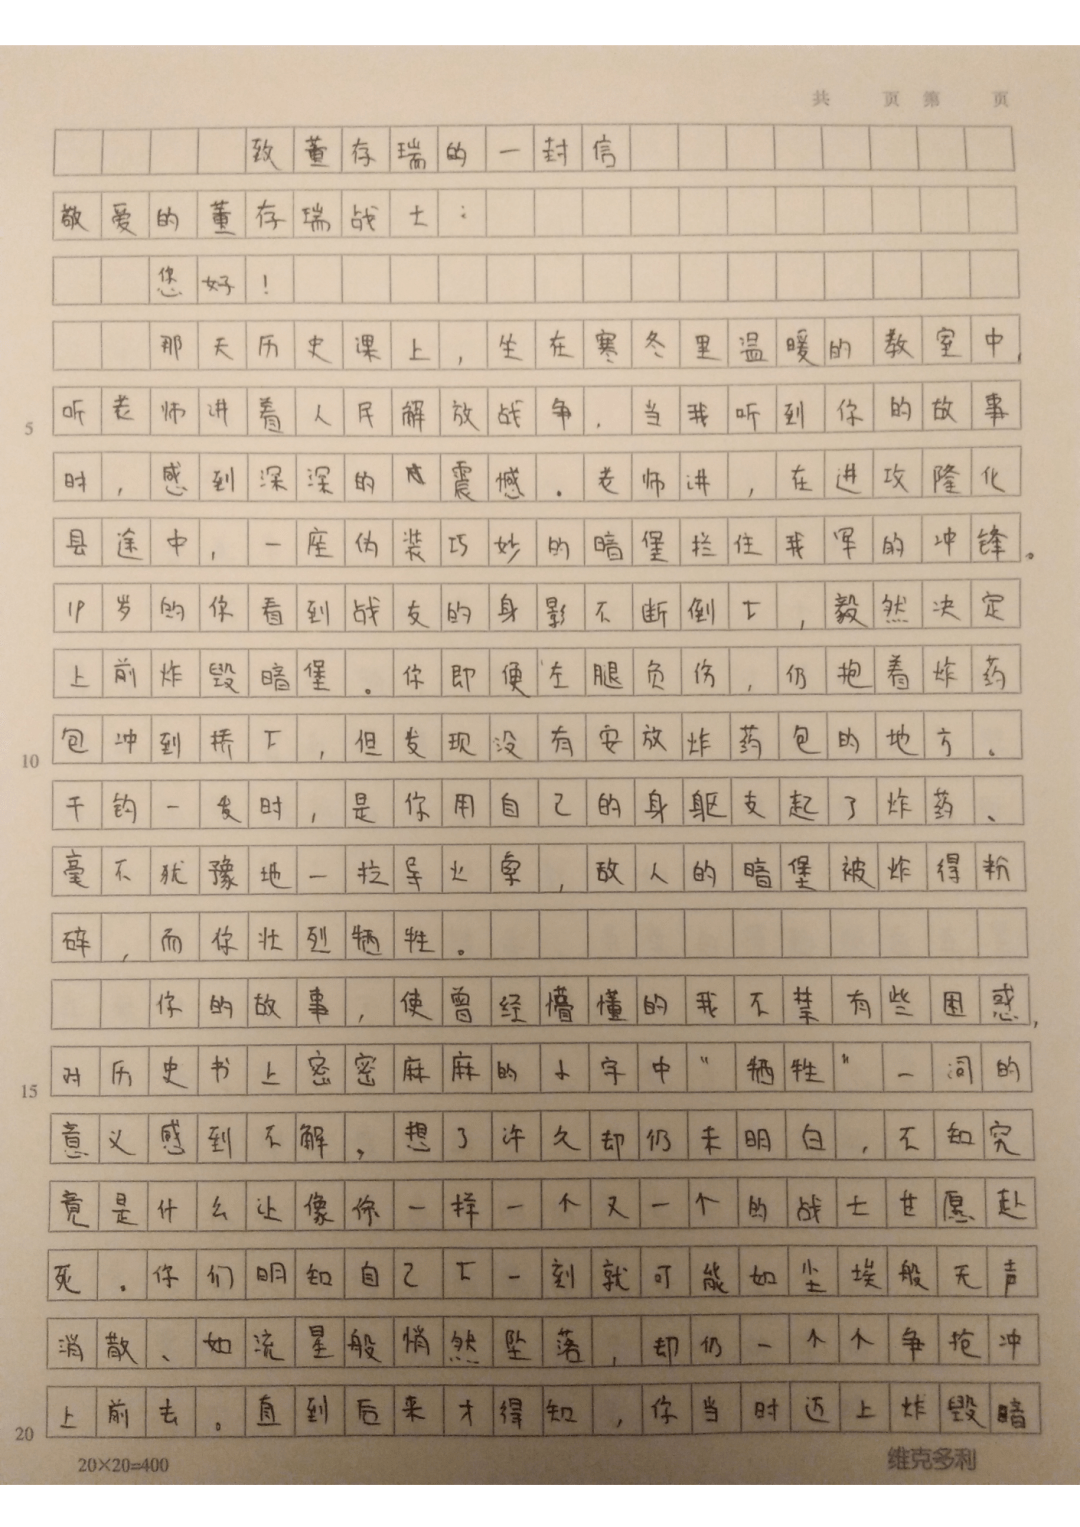 共 页 第 页
致董存瑞的一封信
敬爱的董存瑞战士：
您好！
那天历史课上，坐在寒冬里温暖的教室中，
5 听老师讲着人民解放战争，当我听到你的故事
时，感到深深的震憾。老师讲，在进攻隆化
县途中，一座伪装巧妙的暗堡拦住我军的冲锋。
19岁的你看到战友的身影不断倒下，毅然决定
上前炸毁暗堡。你即便左腿负伤，仍抱着炸药
10 包冲到桥下，但发现没有安放炸药包的地方。
千钧一发时，是你用自己的身躯支起了炸药、
毫不犹豫地一拉导火索，敌人的暗堡被炸得粉
碎，而你壮烈牺牲。
你的故事，使曾经懵懂的我不禁有些困惑，
15 对历史书上密密麻麻的小字中“牺牲”一词的
意义感到不解，想了许久却仍未明白，不知究
竟是什么让像你一样一个又一个的战士甘愿赴
死。你们明知自己下一刻就可能如尘埃般无声
消散、如流星般悄然坠落，却仍一个个争抢冲
20 上前去。直到后来才得知，你当时迈上炸毁暗
20×20=400 维克多利